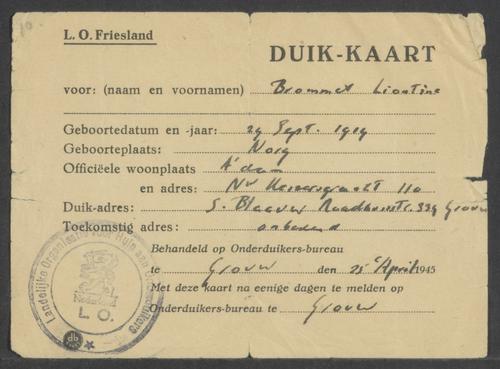 10
L. O. Friesland
DUIK-KAART
voor: (naam en voornamen) Brommet Liontine
Geboortedatum en -jaar: 29 Sept. 1919
Geboorteplaats: Norg
Officiëele woonplaats A'dam
en adres: Nw Keizersgracht 110
Duik-adres: S. Blaauw Raadhuisstr. 339 Grouw
Toekomstig adres: onbekend
Behandeld op Onderduikers-bureau
te Grouw den 25 April 1945
Met deze kaart na eenige dagen te melden op
Onderduikers-bureau te Grouw
Landelijke Organisatie voor Hulp aan Onderduikers
Nederland
L O.